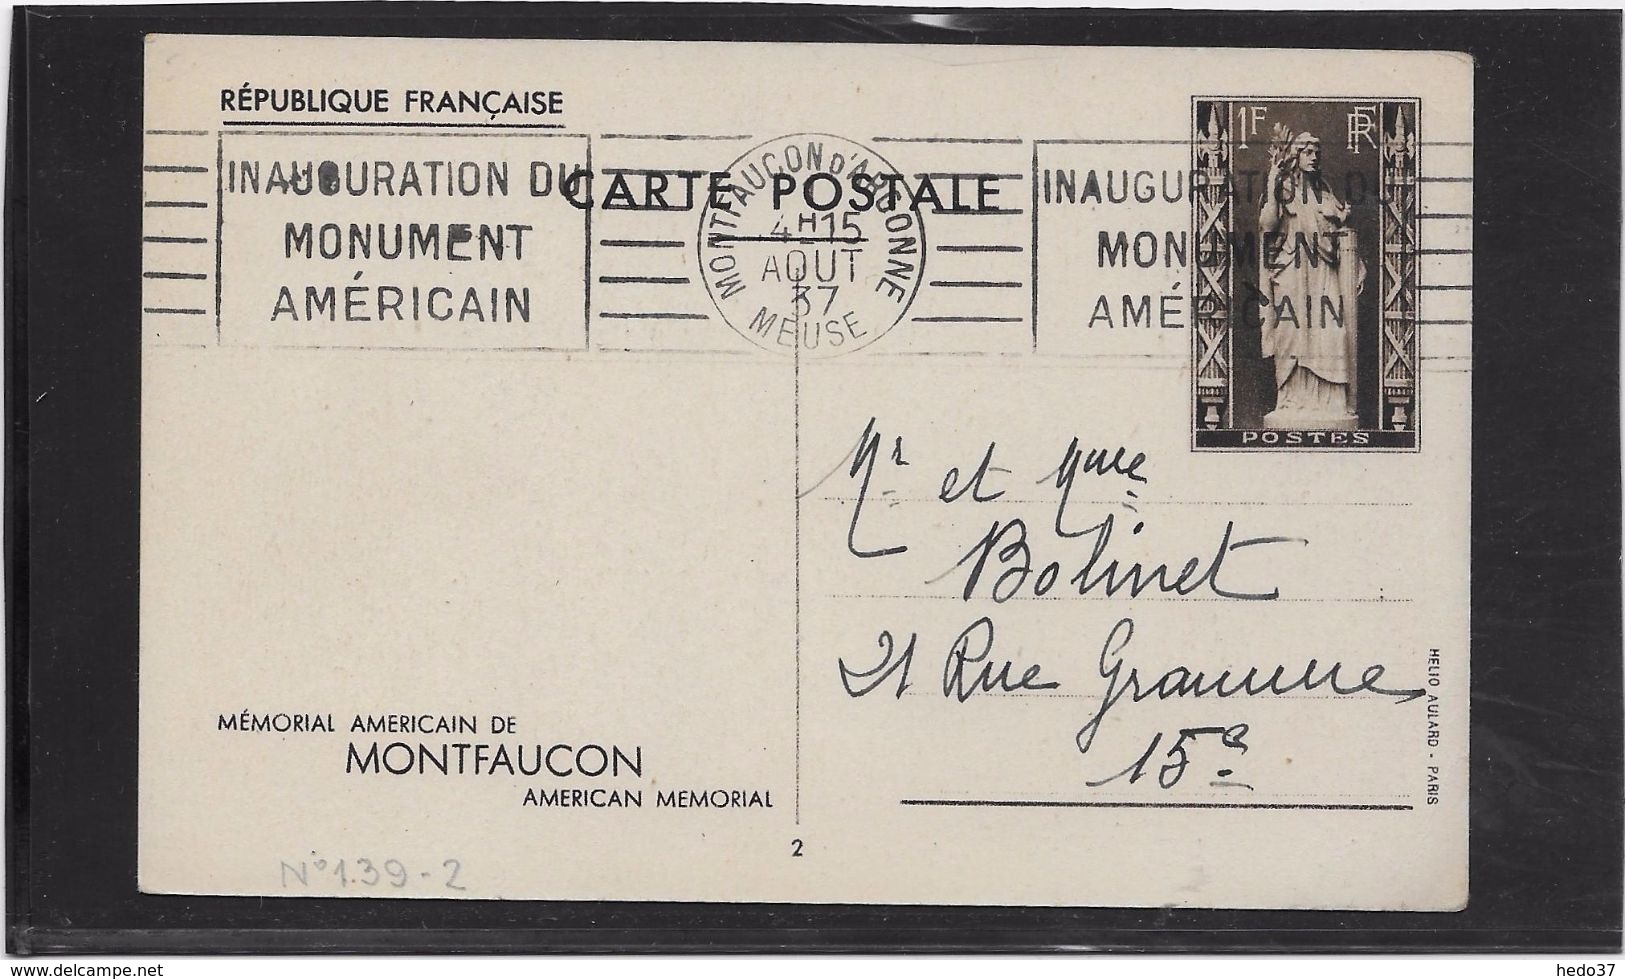 RÉPUBLIQUE FRANÇAISE
CARTE POSTALE
INAUGURATION DU
MONUMENT
AMÉRICAIN
MONTFAUCON D'ARGONNE
4H15
AOUT
37
MEUSE
INAUGURATION DU
MONUMENT
AMÉRICAIN
1F RF
POSTES
Mr et Mme
Bolinet
21 Rue Gramme
15e
HELIO AULARD - PARIS
MÉMORIAL AMERICAIN DE
MONTFAUCON
AMERICAN MEMORIAL
2
N°139-2
www.delcampe.net
hedo37